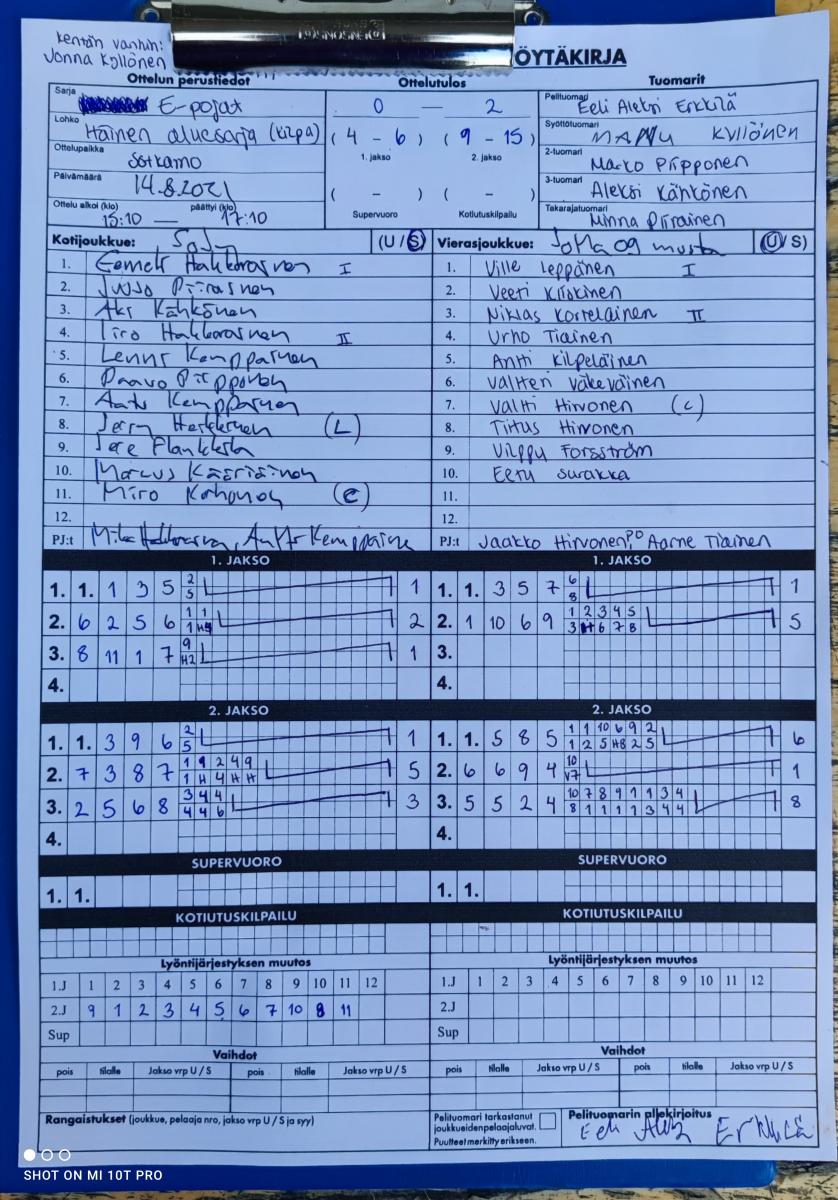 Kentän vanhin:
Jonna Kyllönen
ÖYTÄKIRJA
Ottelun perustiedot
Ottelutulos
Tuomarit
Sarja
E-pojat
0 — 2
Pelituomari
Eeli Aleksi Erkkilä
Lohko
Itäinen aluesarja (kilpa)
( 4 - 6 ) ( 9 - 15 )
1. jakso 2. jakso
Syöttötuomari
MANU KYLLÖNEN
Ottelupaikka
Sotkamo
2-tuomari
Marko Piipponen
Päivämäärä
14.8.2021
( - ) ( - )
Supervuoro Kotiutuskilpailu
3-tuomari
Aleksi Kähkönen
Ottelu alkoi (klo) päättyi (klo)
15:10 — 17:10
Takarajatuomari
Minna Piirainen
Kotijoukkue: SoJy (U / S)
Vierasjoukkue: JoMa og musta (U / S)
1. Eemeli Hakkarainen I
1. Ville Leppänen I
2. Juuso Piirainen
2. Veeti Kiiskinen
3. Aki Kähkönen
3. Niklas Kortelainen II
4. Iiro Hakkarainen II
4. Urho Tiainen
5. Lenni Kemppainen
5. Antti Kilpeläinen
6. Paavo Piipponen
6. Valtteri Väkeväinen
7. Aatu Kemppainen
7. Valtti Hirvonen (c)
8. Jerry Heikkinen (L)
8. Titus Hirvonen
9. Jere
9. Vilppu Forsström
10. Marcus Kääriäinen
10. Eetu Surakka
11. Miro Korhonen (c)
11.
12.
12.
PJ:t Mika Hakkarainen, Antti Kemppainen
PJ:t Jaakko Hirvonen PO Aarne Tiainen
1. JAKSO
1. JAKSO
1. 1. 1 3 5 2 1
5
1. 1. 3 5 7 6 1
8
2. 6 2 5 6 1 1 2
1 H4
2. 1 10 6 9 1 2 3 4 5 5
3 H 6 7 8
3. 8 11 1 7 9 1
H2
3.
4.
4.
2. JAKSO
2. JAKSO
1. 1. 3 9 6 2 1
5
1. 1. 5 8 5 1 1 10 6 9 2 6
1 2 5 H8 2 5
2. 7 3 8 7 1 9 2 4 9 5
1 H 4 H H
2. 6 6 9 4 10 1
V7
3. 2 5 6 8 3 4 4 3
4 4 6
3. 5 5 2 4 10 7 8 9 1 1 3 4 8
8 1 1 1 1 3 4 4
4.
4.
SUPERVUORO
SUPERVUORO
1. 1.
1. 1.
KOTIUTUSKILPAILU
KOTIUTUSKILPAILU
Lyöntijärjestyksen muutos
Lyöntijärjestyksen muutos
1.J 1 2 3 4 5 6 7 8 9 10 11 12
1.J 1 2 3 4 5 6 7 8 9 10 11 12
2.J 9 1 2 3 4 5 6 7 10 8 11
2.J
Sup
Sup
Vaihdot
Vaihdot
pois tilalle Jakso vrp U / S pois tilalle Jakso vrp U / S
pois tilalle Jakso vrp U / S pois tilalle Jakso vrp U / S
Rangaistukset (joukkue, pelaaja nro, jakso vrp U / S ja syy)
Pelituomari tarkastanut
joukkueidenpelaajaluvat.
Puutteet merkitty erikseen.
Pelituomarin allekirjoitus
Eeli Aleksi Erkkilä
SHOT ON MI 10T PRO